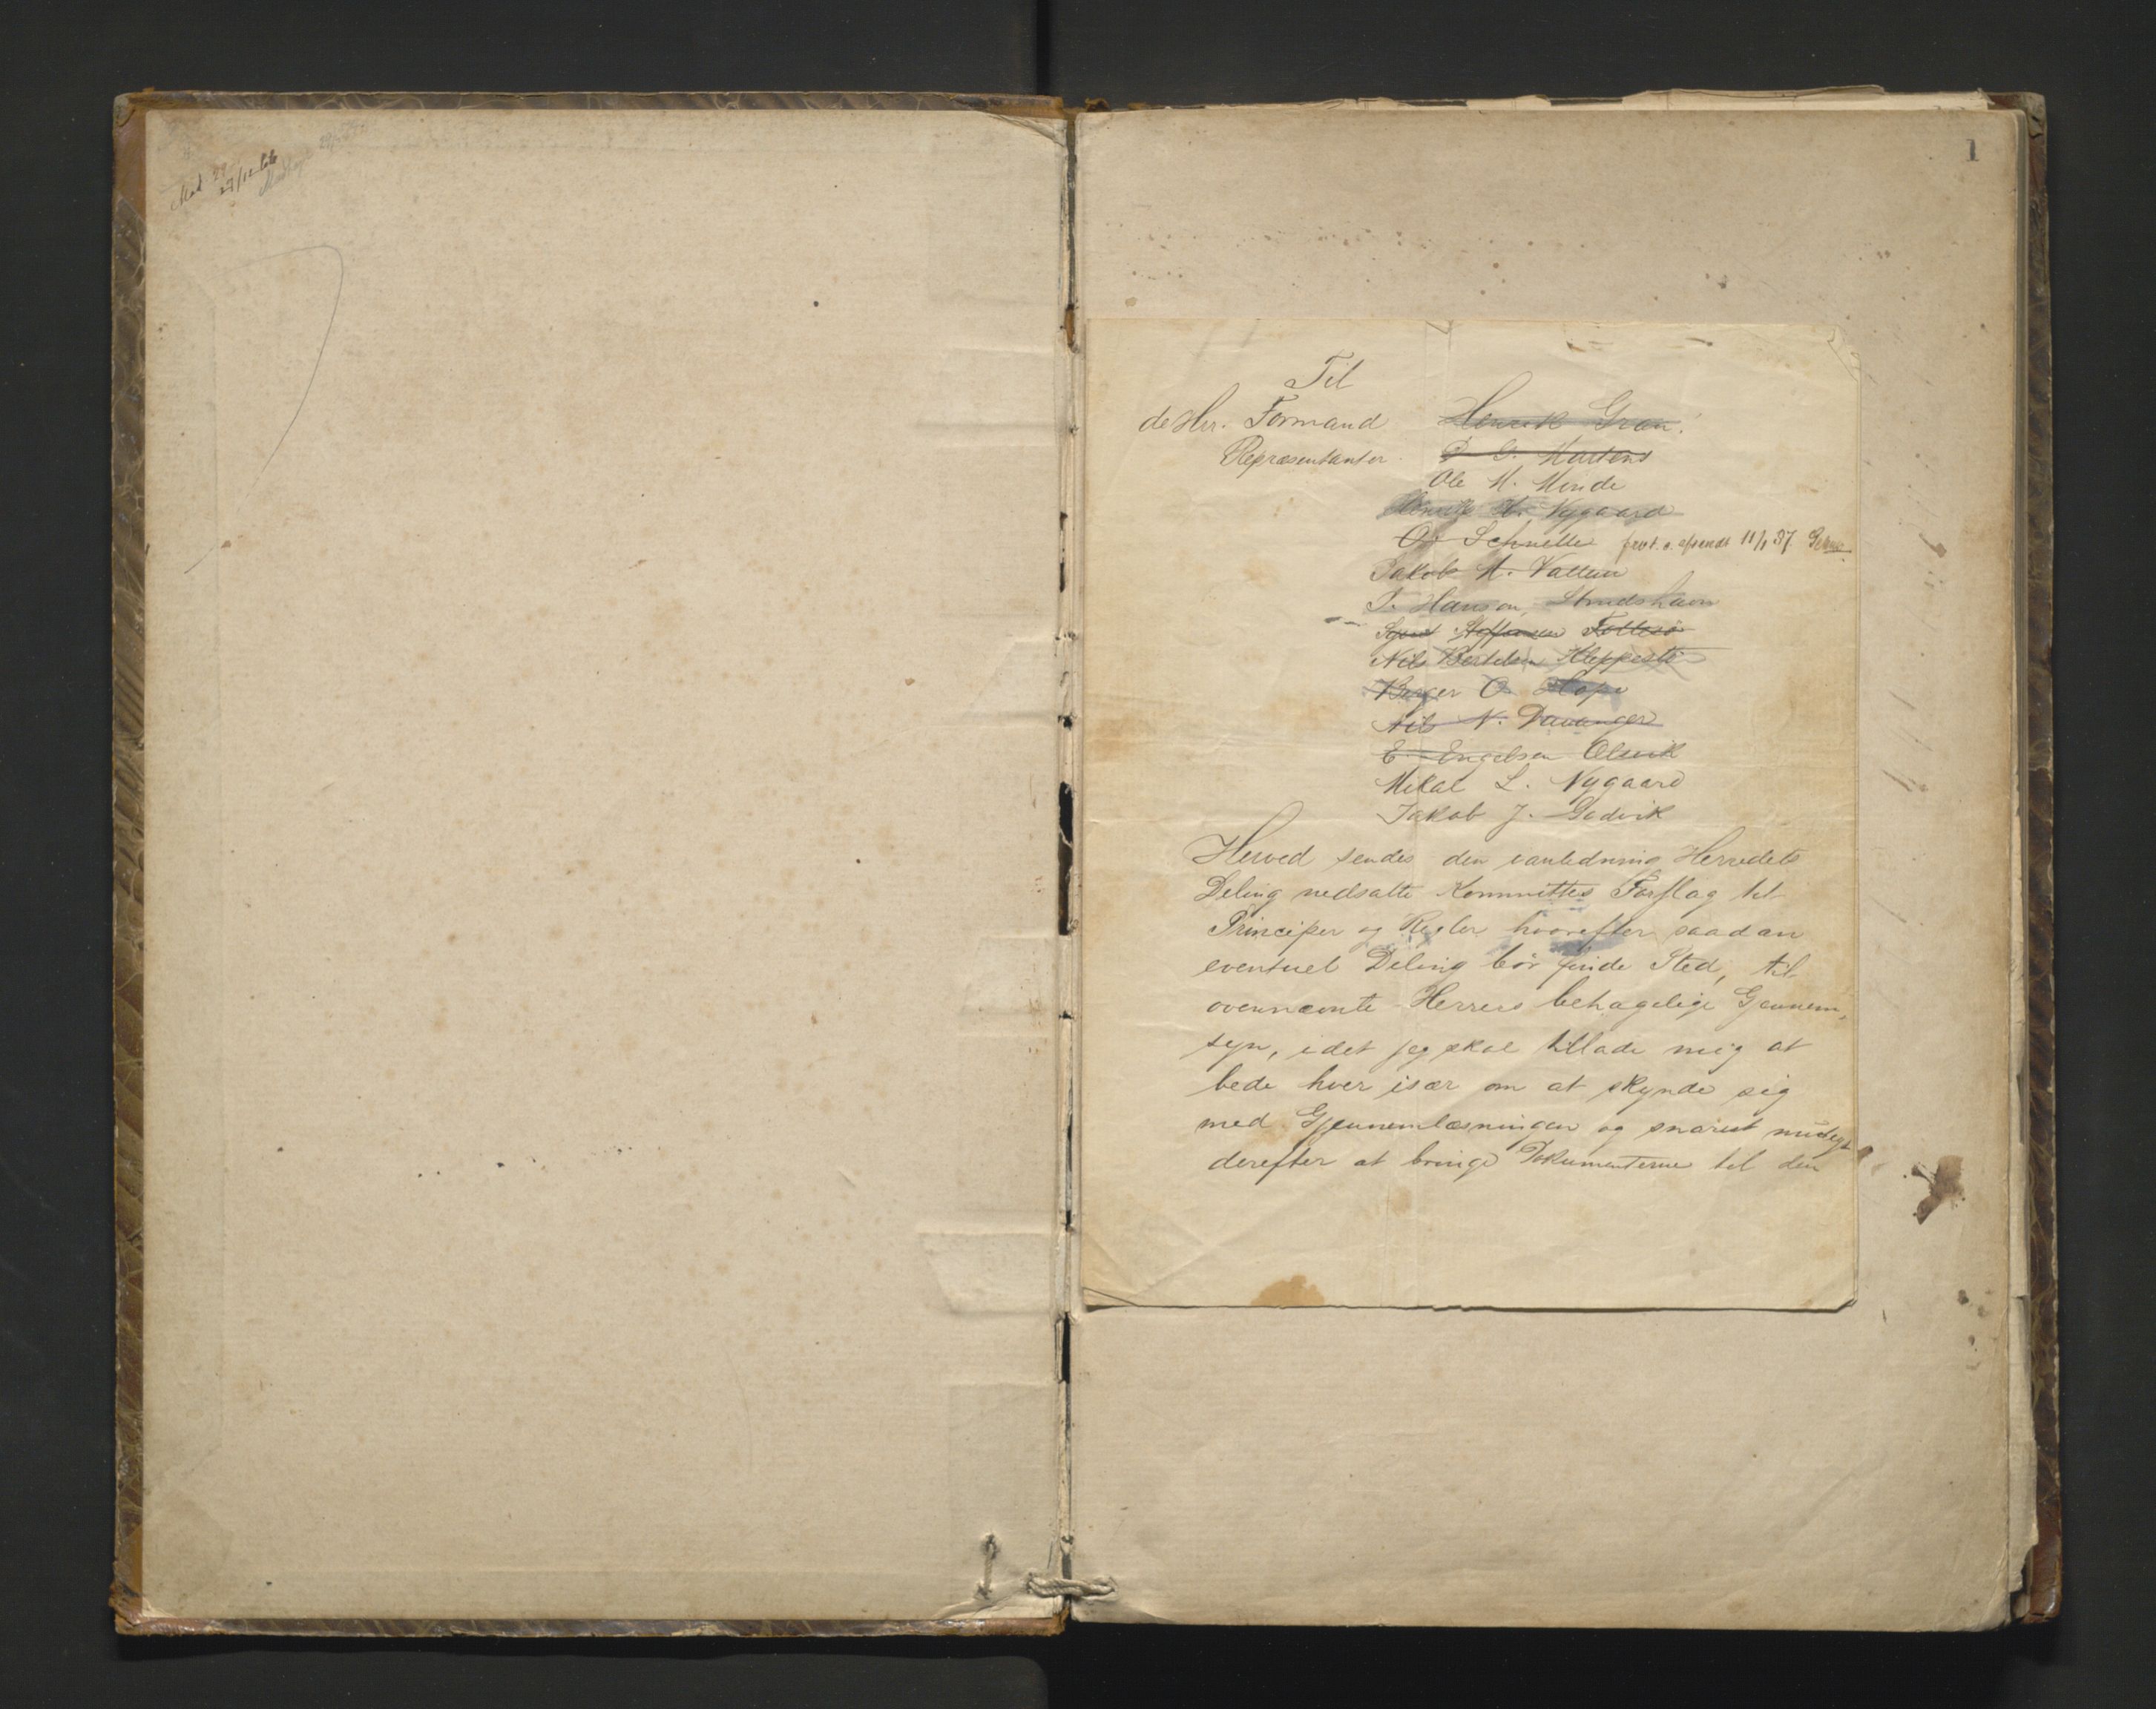 1
Til
de Hrr. Formand Henrik Gran.
Repræsentanter. D. G. Martens
Ole M. Minde
H. Nygaard
O. Schnelle 11/1 87
Jakob M. Vallein
T. Hanson, Strudshavn
Steffensen Follesø
Nils Bertelsen Kleppestø
Birger O. Hope
Nils N. Davanger
E. Engelsen Olsvik
Mikal L. Nygaard
Jakob J. Godvik
Herved sendes den i anledning Herredets
Deling nedsatte Kommittes Forslag til
Principer og Regler hvorefter saadan
eventuel Deling bør finde Sted, til
ovennævnte Herrers behagelige Gjennem,
syn, idet jeg skal tillade mig at
bede hver især om at skynde sig
med Gjennemlæsningen og snarest muligt
derefter at bringe Dokumenterne til den